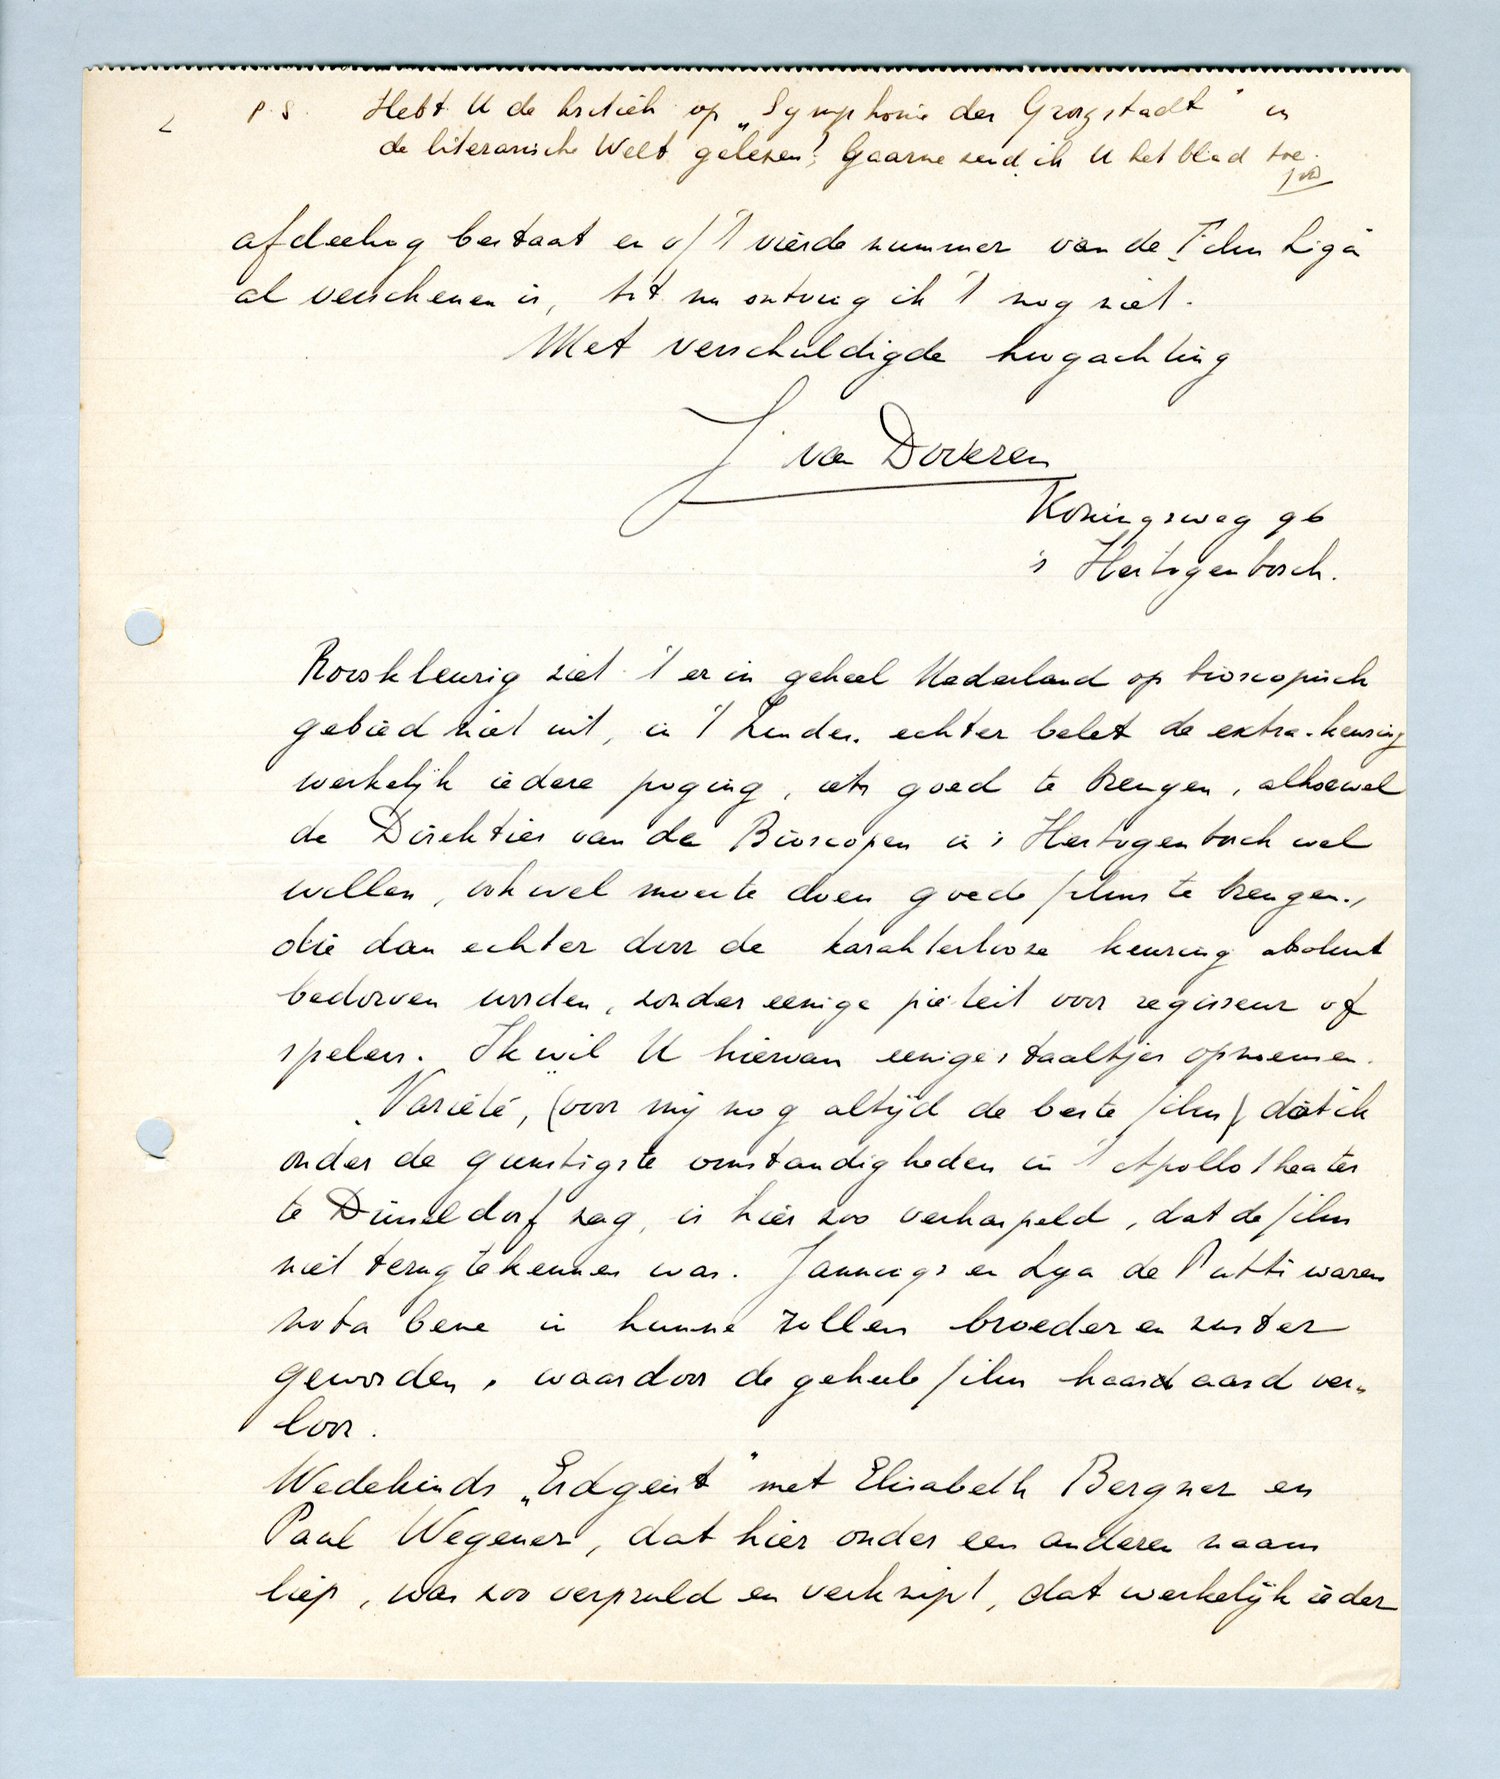 2 P.S. Hebt U de kritiek op „Symphonie der Grozstadt" in
de literarische Welt gelezen? Gaarne zend ik U het blad toe.
JvD
afdeeling bestaat en of 't vierde nummer van de Film Liga
al verschenen is, tot nu ontving ik 't nog niet.
Met verschuldigde hoogachting
J. van Doveren
Koningsweg 96
's Hertogenbosch.
Rooskleurig ziet 't er in geheel Nederland op bioscopisch
gebied niet uit, in 't Zuiden echter belet de extra-keuring
werkelijk iedere poging, iets goed te brengen, alhoewel
de Direkties van de Bioscopen in 's Hertogenbosch wel
willen, ook wel moeite doen goede films te brengen,
die dan echter door de karakterlooze keuring absoluut
bedorven worden, zonder eenige piëteit voor regisseur of
spelers. Ik wil U hiervan eenige staaltjes opnoemen.
„Variété," (voor mij nog altijd de beste film) dat ik
onder de gunstigste omstandigheden in 't Apollotheater
te Dusseldorf zag, is hier zoo verhaspeld, dat de film
niet terug te kennen was. Jannings en Lya de Putti waren
nota bene in hunne rollen broeder en zuster
geworden, waardoor de geheele film haar aard ver-
loor.
Wedekinds „Erdgeist" met Elisabeth Bergner en
Paul Wegener, dat hier onder een anderen naam
liep, was zoo verprold en verknipt, dat werkelijk ieder